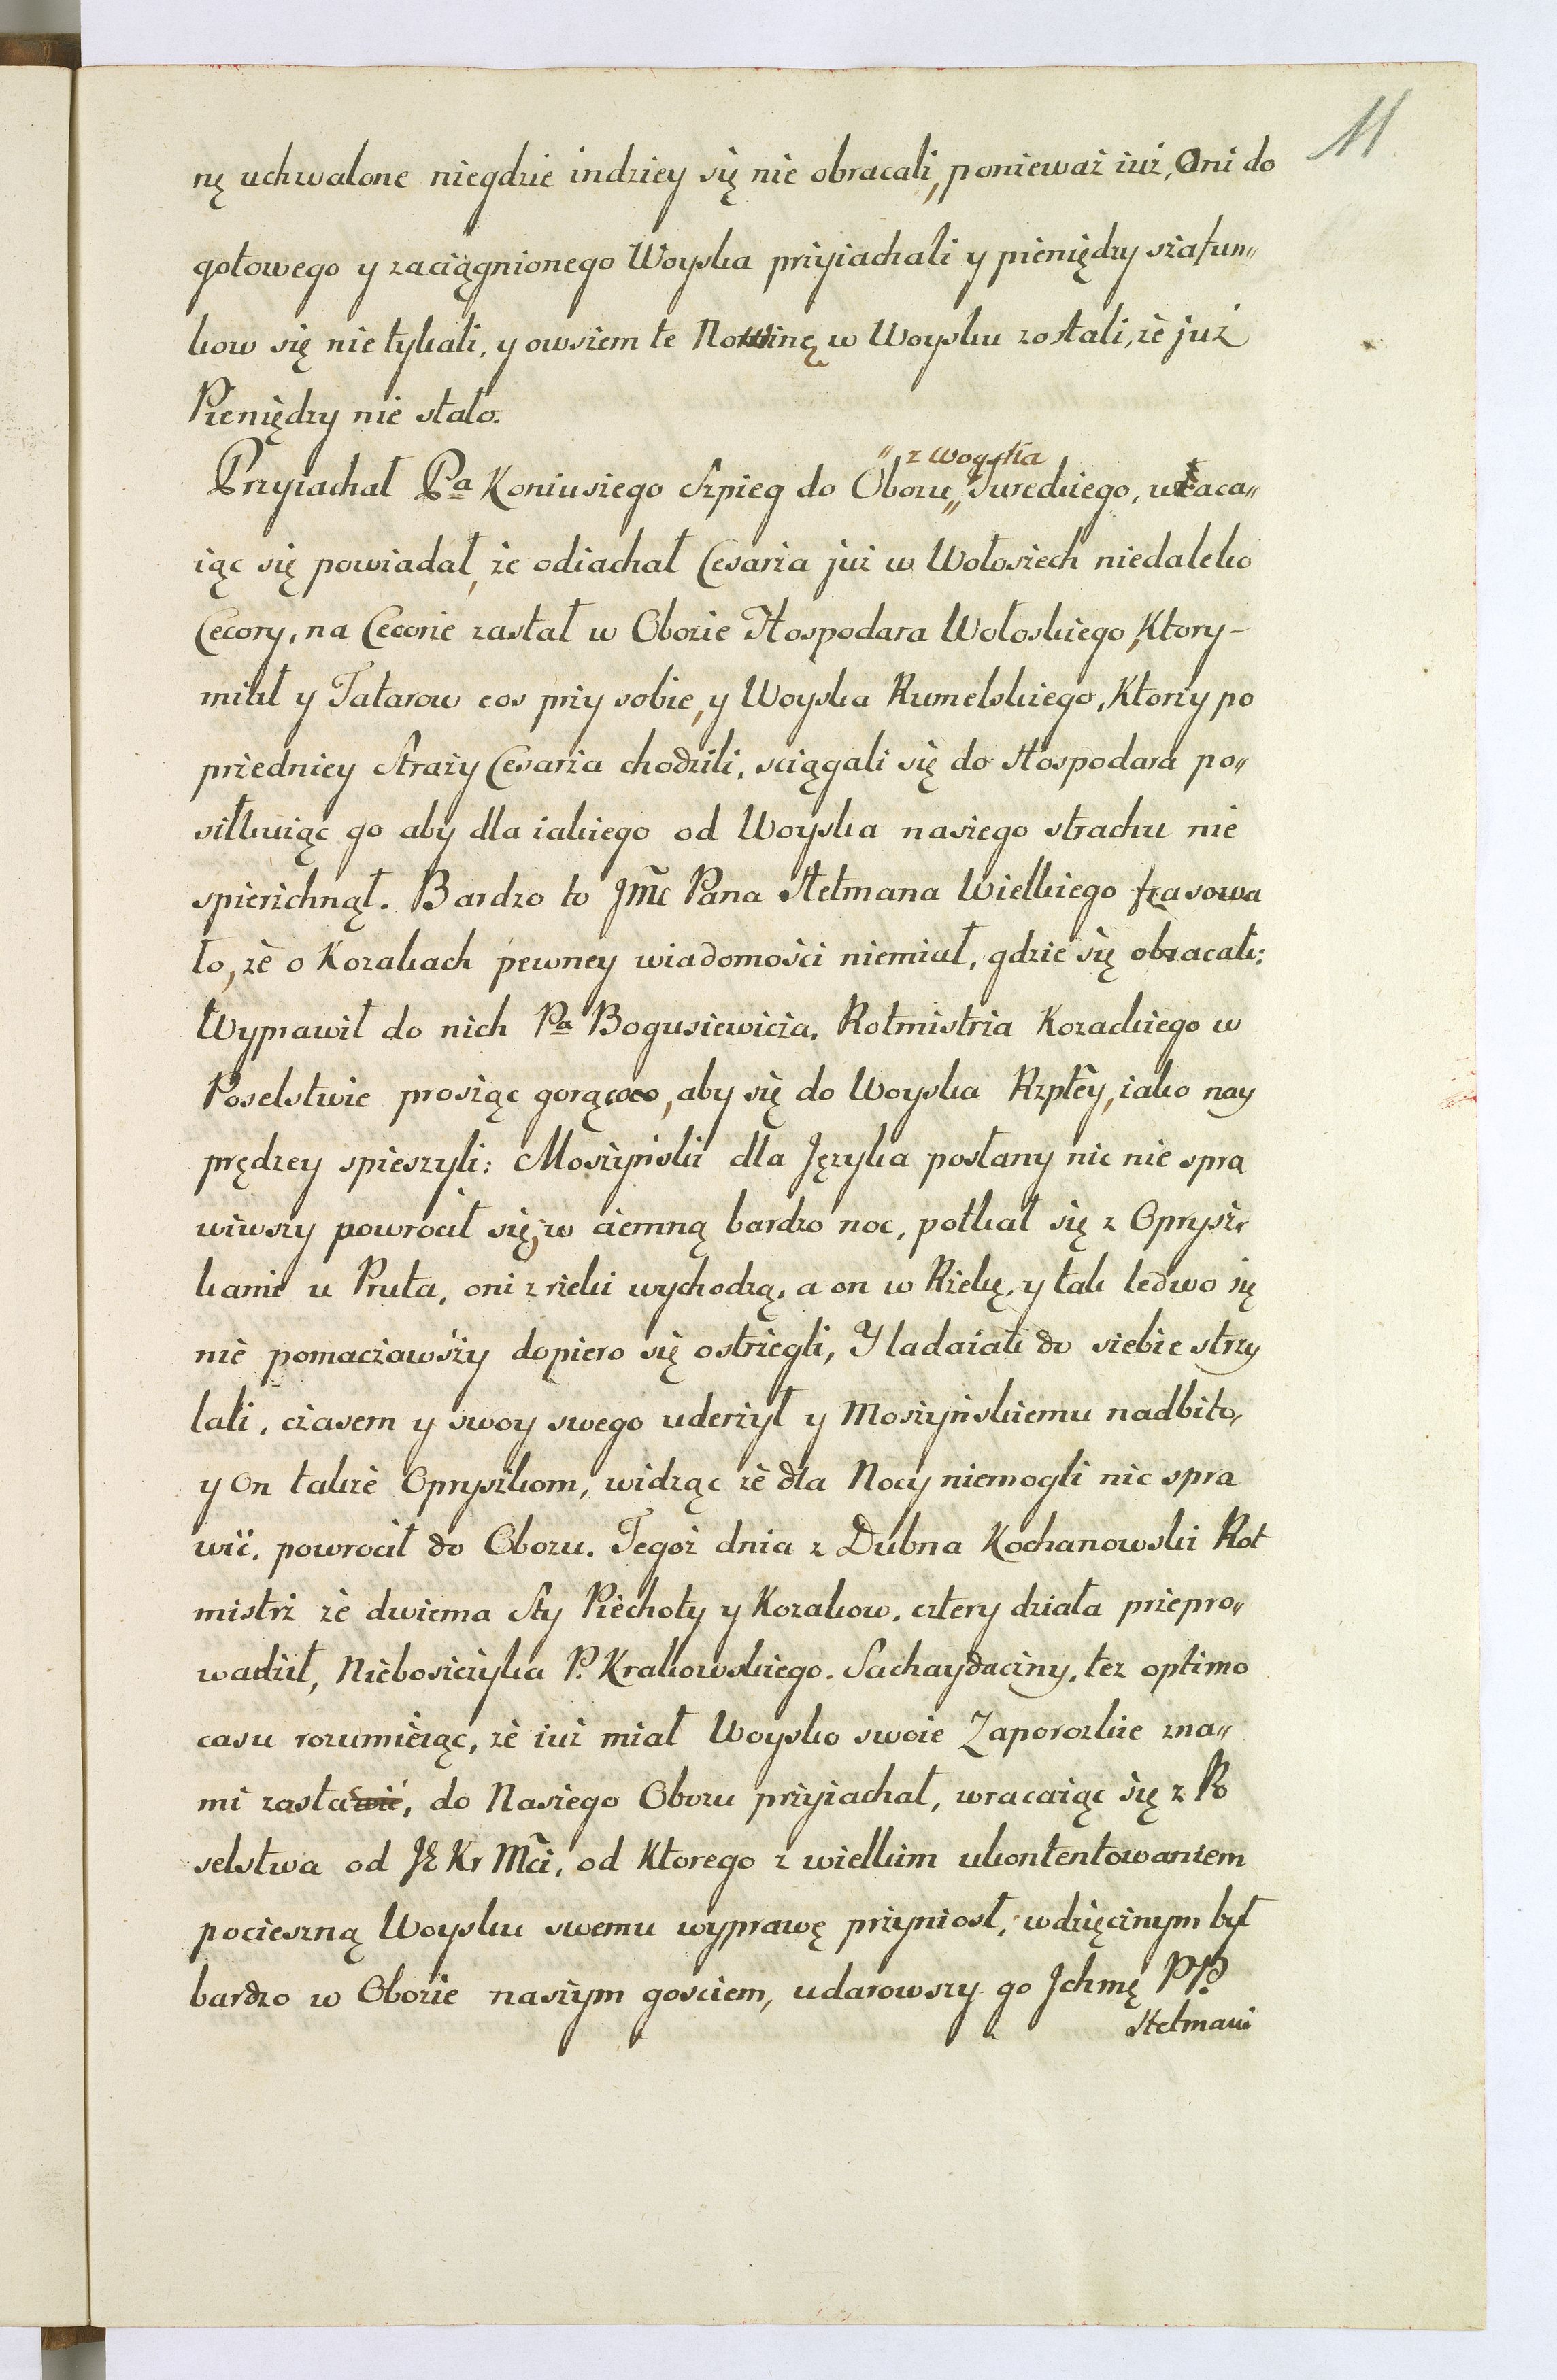 11
nę uchwalone niegdzie indziey się nie obracali, ponieważ iuż, Oni do
gotowego y zaciągnionego Woyska przyiachali y pieniędzy szafun„
kow się nie tykali, y owszem te Nowinę w Woysku zostali, że już
Pieniędzy nie stało.
„ z woyska
Przyiachał Pa Koniuszego Szpieg do Obozu „ Tureckiego, wraca„
iąc się powiadał, że odiachał Cesarza już w Wołoszech niedaleko
Cecory, na Cecorze zastał w Obozie Hospodara Wołoskiego, Ktory-
miał y Tatarow cos przy sobie, y Woyska Rumelskiego, Ktorzy po
przedniey Straży Cesarza chodzili, sciągali się do Hospodara po„
siłkuiąc go aby dla iakiego od Woyska naszego strachu nie
spierzchnął. Bardzo to Jmc Pana Hetmana Wielkiego frasowa
ło, że o Kozakach pewney wiadomości niemiał, gdzie się obracali:
Wyprawił do nich Pa Bogusiewicza, Rotmistrza Kozackiego w
Poselstwie prosząc gorąco, aby się do Woyska Rzpltey, iako nay
prędzey spieszyli: Moszyński dla Języka posłany nic nie spra
wiwszy powrocił się, w ciemną bardzo noc, potkał się z Oprysz„
kami u Pruta, oni z rzeki wychodzą, a on w Rzekę, y tak ledwo się
nie pomaczawszy dopiero się ostrzegli, Y ladaiak do siebie strzy
lali, czasem y swoy swego uderzył y Moszyńskiemu nadbito,
y On także Opryszkom, widząc że dla Nocy niemogli nic spra
wić, powrocił do Obozu. Tegoż dnia z Dubna Kochanowski Rot
mistrz ze dwiema Sty Piechoty y Kozakow, cztery działa przepro„
wadził, Nieboszczyka P. Krakowskiego. Sachaydaczny, tez optimo
casu rozumieiąc, że iuż miał Woysko swoie Zaporozkie zna„
mi zastawić, do Naszego Obozu przyiachał, wracaiąc się z Po
selstwa od JE Kr Mći, od Ktorego z wielkim ukontentowaniem
pocieszną Woysku swemu wyprawę przyniosł, wdzięcznym był
bardzo w Obozie naszym gosciem, udarowszy go Jchmę PP.
Hetmani